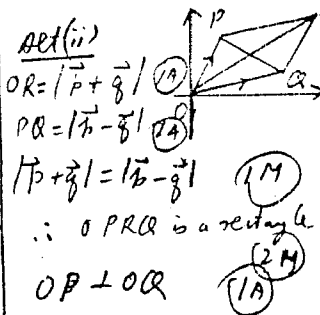 Alt(ii)
P
OR = |p⃗ + q⃗| (1A)
Q
O
PQ = |p⃗ - q⃗| (1A)
|p⃗ + q⃗| = |p⃗ - q⃗| (1M)
∴ OPRQ is a rectangle
(2M)
OP ⊥ OQ (1A)